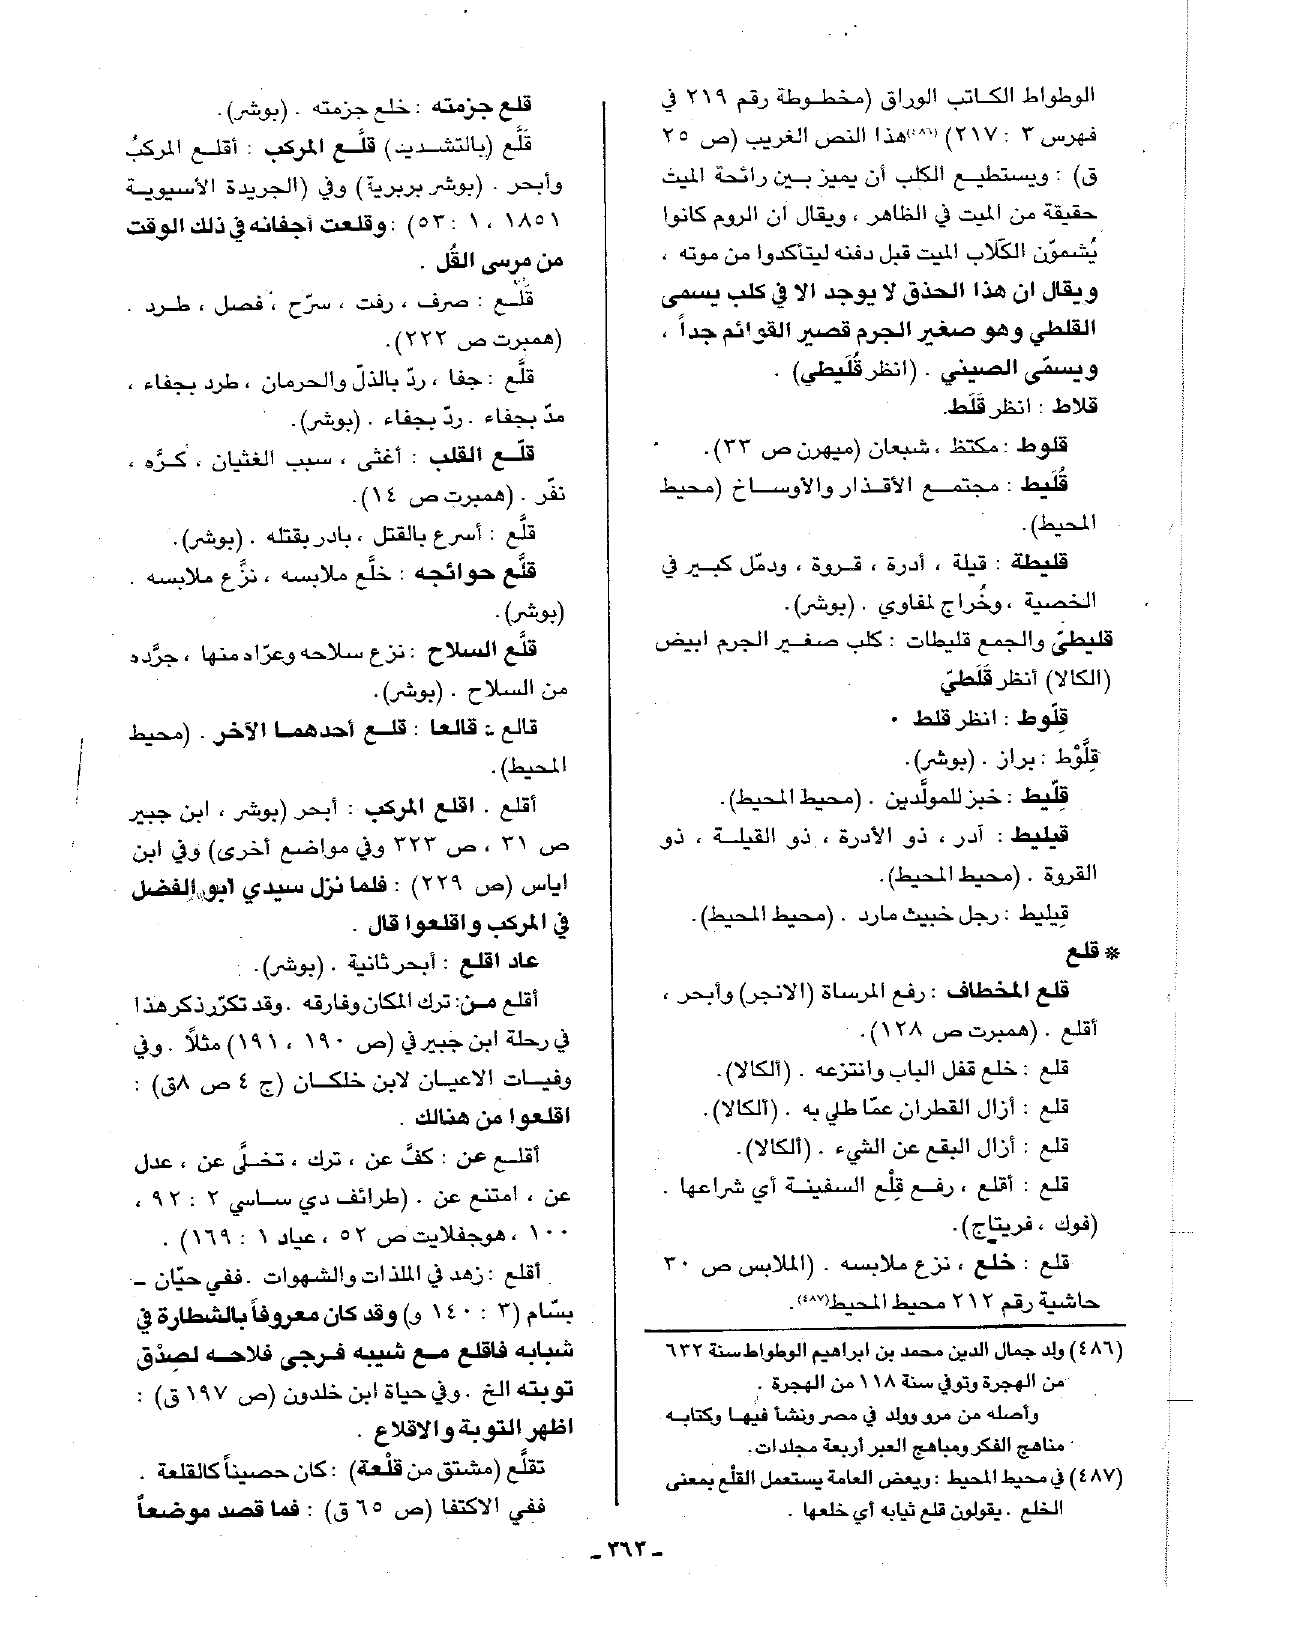 الوطواط الكاتب الوراق (مخطوطة رقم ٢١٩ في
فهرس ٣ : ٢١٧) (٤٨٦)هذا النص الغريب (ص ٢٥
ق) : ويستطيع الكلب أن يميز بين رائحة الميت
حقيقة من الميت في الظاهر ، ويقال ان الروم كانوا
يُشمون الكلاب الميت قبل دفنه ليتأكدوا من موته ،
ويقال ان هذا الحذق لا يوجد الا في كلب يسمى
القلطي وهو صغير الجرم قصير القوائم جداً ،
ويسمّى الصيني . (انظر قُلَيطي) .
قلاط : انظر قَلَط.
قلوط : مكتظ ، شبعان (ميهرن ص ٣٣).
قُلَيط : مجتمع الأقذار والأوساخ (محيط
المحيط).
قليطة : قيلة ، أدرة ، قروة ، ودمّل كبير في
الخصية ، وخُراج لمفاوي . (بوشر).
قليطيّ والجمع قليطات : كلب صغير الجرم ابيض
(الكالا) أنظر قَلَطيّ
قلّوط : انظر قلط .
قِلَّوْط : براز . (بوشر).
قلّيط : خبز للمولَّدين . (محيط المحيط).
قيليط : آدر ، ذو الأدرة ، ذو القيلة ، ذو
القروة . (محيط المحيط).
قيليط : رجل خبيث مارد . (محيط المحيط).
* قلع
قلع المخطاف : رفع المرساة (الانجر) وأبحر ،
أقلع . (همبرت ص ١٢٨).
قلع : خلع قفل الباب وانتزعه . (ألكالا).
قلع : أزال القطران عمّا طلي به . (ألكالا).
قلع : أزال البقع عن الشيء . (ألكالا).
قلع : أقلع ، رفع قِلْع السفينة أي شراعها .
(فوك ، فريتاج).
قلع : خلع ، نزع ملابسه . (الملابس ص ٣٠
حاشية رقم ٢١٢ محيط المحيط(٤٨٧).
(٤٨٦) ولد جمال الدين محمد بن ابراهيم الوطواط سنة ٦٣٢
من الهجرة وتوفي سنة ١١٨ من الهجرة .
وأصله من مرو وولد في مصر ونشأ فيها وكتابه
مناهج الفكر ومباهج العبر أربعة مجلدات.
(٤٨٧) في محيط المحيط : وبعض العامة يستعمل القلْع بمعنى
الخلع . يقولون قلع ثيابه أي خلعها .
قلع جزمته : خلع جزمته . (بوشر).
قَلَّع (بالتشديد) قلَّع المركب : أقلع المركبُ
وأبحر . (بوشر بربرية) وفي (الجريدة الأسيوية
١٨٥١ ، ١ : ٥٣) : وقلعت أجفانه في ذلك الوقت
من مرسى القُل .
قلَّع : صرف ، رفت ، سرّح ، فصل ، طرد .
(همبرت ص ٢٢٢).
قلَّع : جفا ، ردّ بالذلّ والحرمان ، طرد بجفاء ،
مدّ بجفاء . ردّ بجفاء . (بوشر).
قلّع القلب : أغثى ، سبب الغثيان ، كرَّه ،
نفّر . (همبرت ص ١٤).
قلَّع : أسرع بالقتل ، بادر بقتله . (بوشر).
قلَّع حوائجه : خلَّع ملابسه ، نزَّع ملابسه .
(بوشر).
قلَّع السلاح : نزع سلاحه وعرّاه منها ، جرَّده
من السلاح . (بوشر).
قالع : قالعا : قلع أحدهما الآخر . (محيط
المحيط).
أقلع . اقلع المركب : أبحر (بوشر ، ابن جبير
ص ٣١ ، ص ٣٢٣ وفي مواضع أخرى) وفي ابن
اياس (ص ٢٢٩) : فلما نزل سيدي ابو الفضل
في المركب واقلعوا قال .
عاد اقلع : أبحر ثانية . (بوشر).
أقلع من : ترك المكان وفارقه . وقد تكرّر ذكر هذا
في رحلة ابن جبير في (ص ١٩٠ ، ١٩١) مثلاً . وفي
وفيات الاعيان لابن خلكان (ج ٤ ص ٨ق) :
اقلعوا من هنالك .
أقلع عن : كفَّ عن ، ترك ، تخلَّى عن ، عدل
عن ، امتنع عن . (طرائف دي ساسي ٢ : ٩٢ ،
١٠٠ ، هوجفلايت ص ٥٢ ، عباد ١ : ١٦٩) .
أقلع : زهد في الملذات والشهوات . ففي حيّان -
بسّام (٣ : ١٤٠ و) وقد كان معروفاً بالشطارة في
شبابه فاقلع مع شيبه فرجى فلاحه لصِدْق
توبته الخ . وفي حياة ابن خلدون (ص ١٩٧ ق) :
اظهر التوبة والاقلاع .
تقلَّع (مشتق من قلْعة) : كان حصيناً كالقلعة .
ففي الاكتفا (ص ٦٥ ق) : فما قصد موضعاً
- ٣٦٣ -